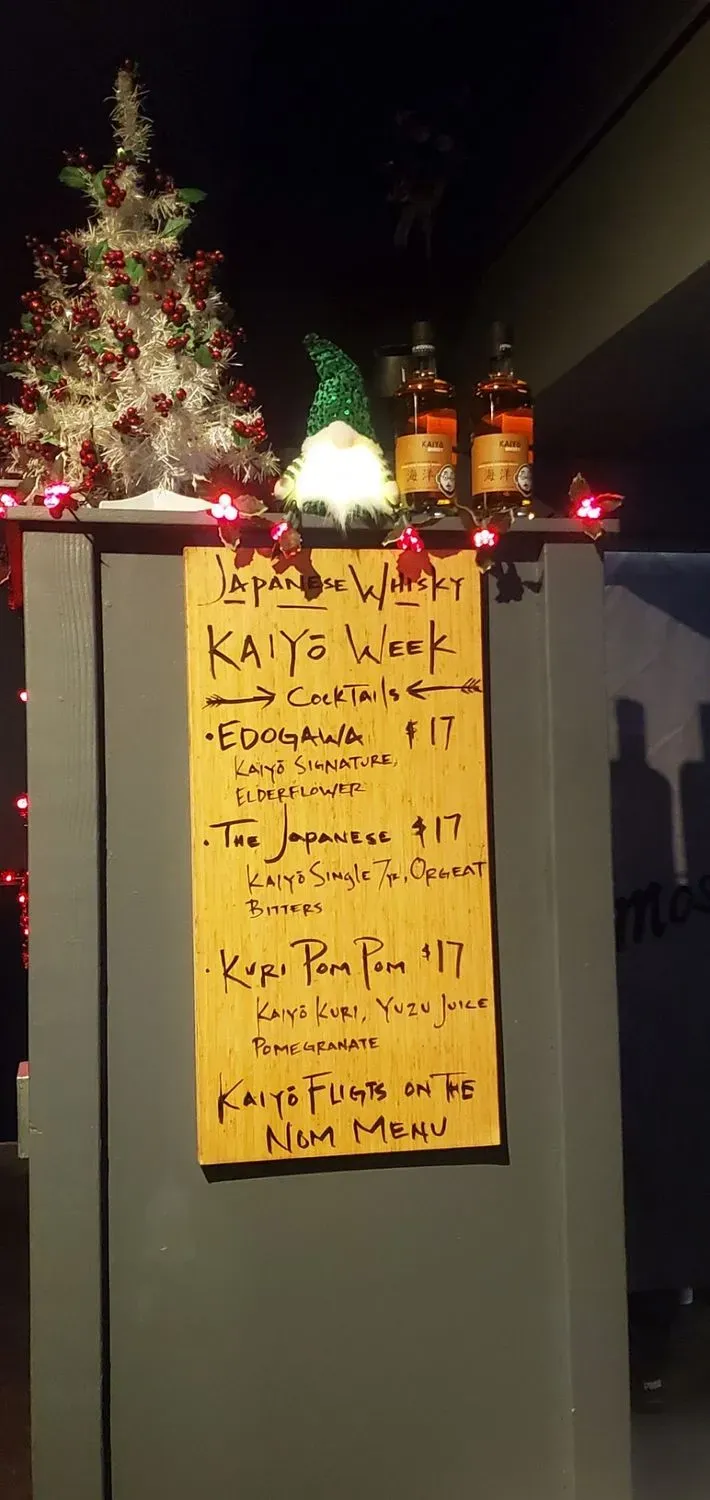 KAIYŌ
海洋
KAIYŌ
海洋
JAPANESE WHISKY
KAIYŌ WEEK
COCKTAILS
• EDOGAWA $17
KAIYŌ SIGNATURE,
ELDERFLOWER
• THE JAPANESE $17
KAIYŌ SINGLE 7yr, ORGEAT
BITTERS
• KURI POM POM $17
KAIYŌ KURI, YUZU JUICE
POMEGRANATE
KAIYŌ FLIGTS ON THE
NOM MENU